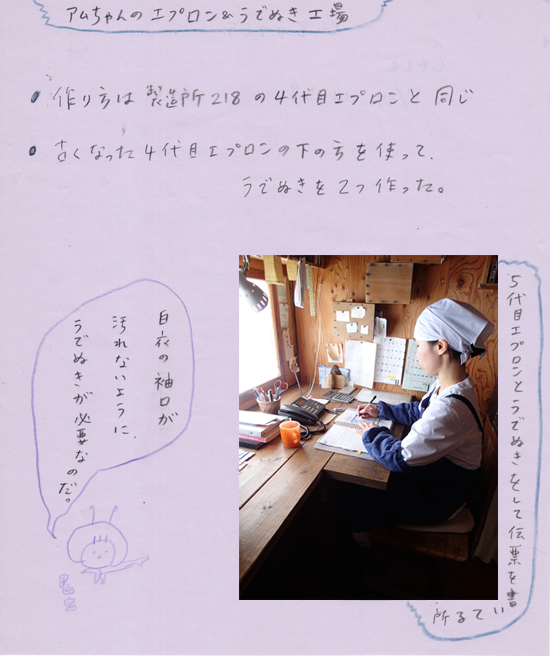 アムちゃんのエプロン&うでぬき工場
作り方は製造所218の4代目エプロンと同じ
古くなった4代目エプロンの下の方を使って、
うでぬきを2つ作った。
白衣の袖口が
汚れないように、
うでぬきが必要なのだ。
5代目エプロンとうでぬきをして伝票を書いてる所